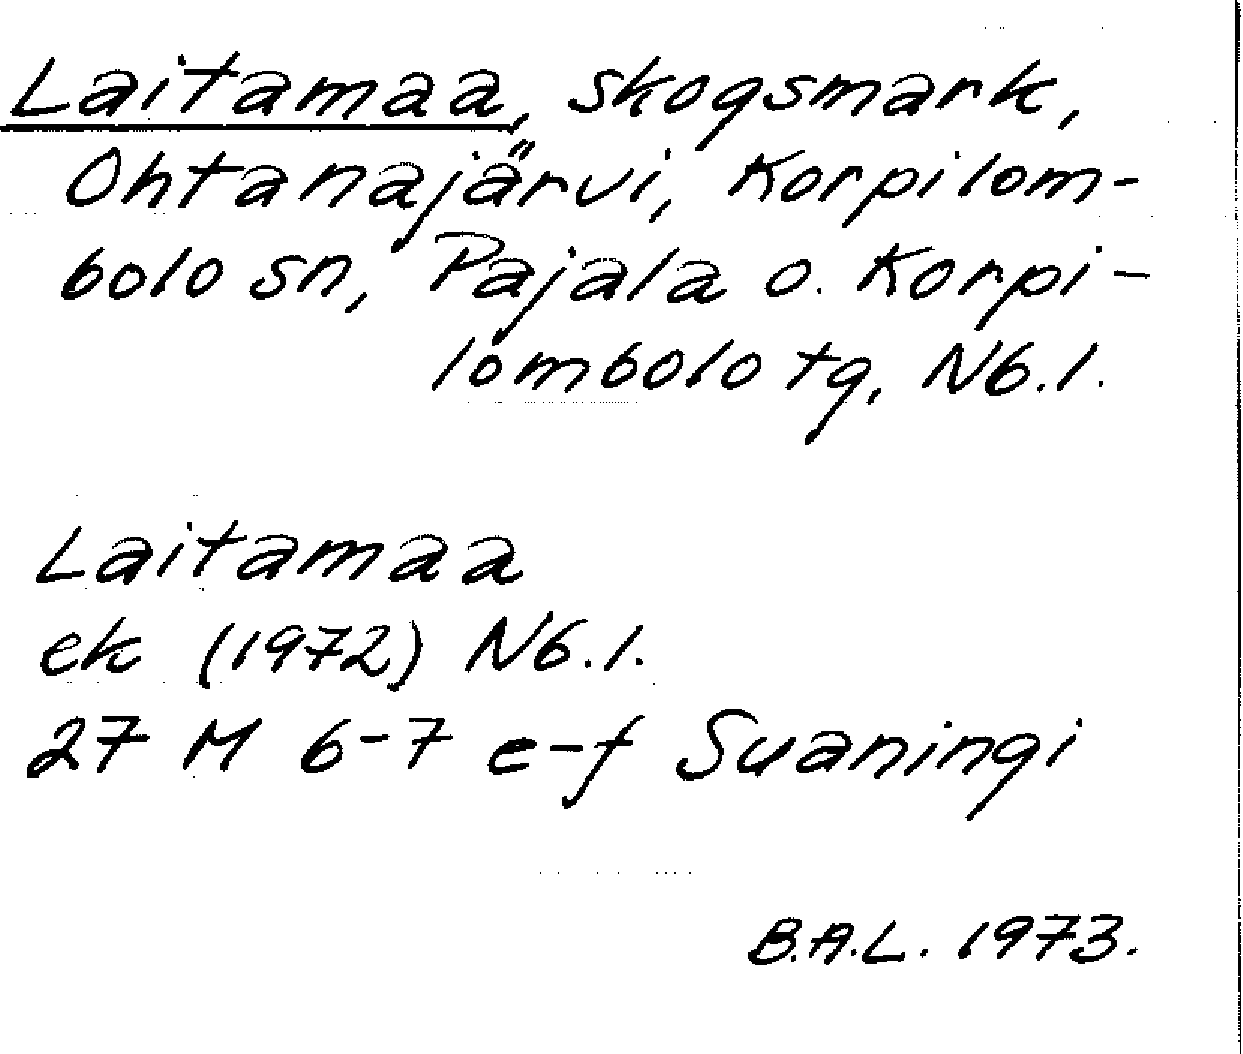 Laitamaa, skogsmark,
Ohtanajärvi, Korpilom-
bolo sn, Pajala o. Korpi-
lombolo tg, Nb.l.
Laitamaa
ek (1972) Nb.l.
27 M 6-7 e-f Suaningi
B.A.L. 1973.